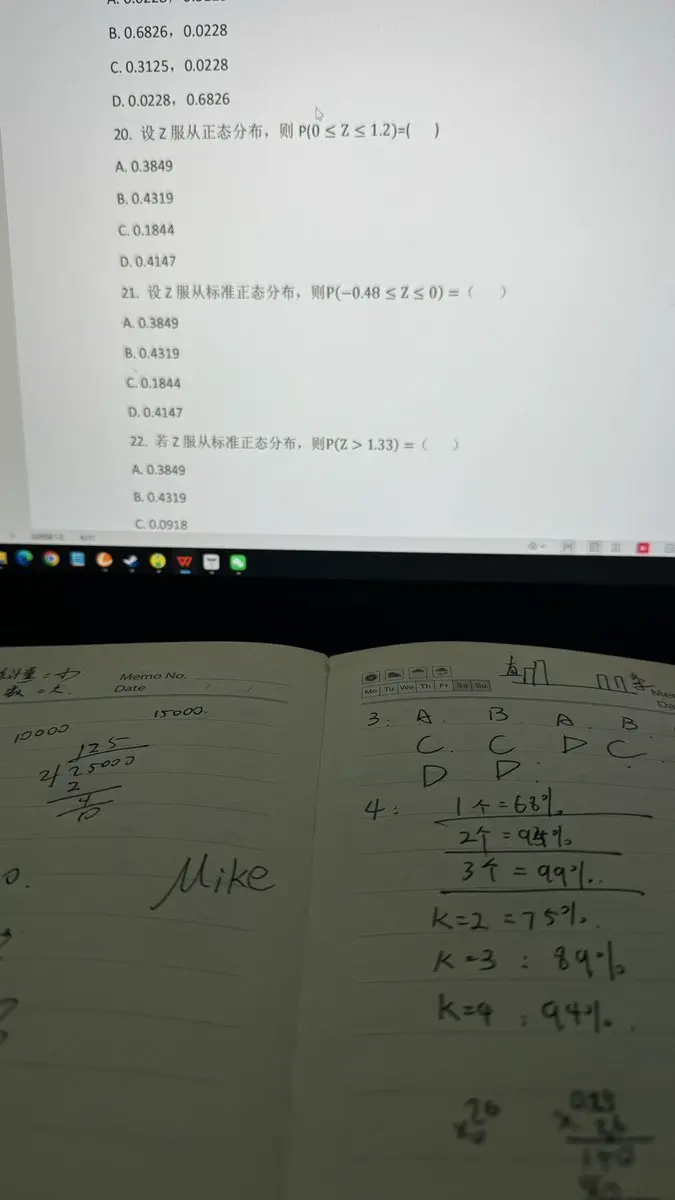 B. 0.6826，0.0228
C. 0.3125，0.0228
D. 0.0228，0.6826
20. 设 Z 服从正态分布，则 P(0 ≤ Z ≤ 1.2)=( )
A. 0.3849
B. 0.4319
C. 0.1844
D. 0.4147
21. 设 Z 服从标准正态分布，则P(−0.48 ≤ Z ≤ 0) =（ ）
A. 0.3849
B. 0.4319
C. 0.1844
D. 0.4147
22. 若 Z 服从标准正态分布，则P(Z > 1.33) =（ ）
A. 0.3849
B. 0.4319
C. 0.0918
Memo No.
Date
10000 15000.
125
2/25000
2
4
Mike
Mo Tu We Th Fr Sa Su
3: A. B. A. B
C. C D C.
D D.
4: 1个=68%
2个=95%
3个=99%.
K=2=75%.
K=3: 89%
K=4: 94%.